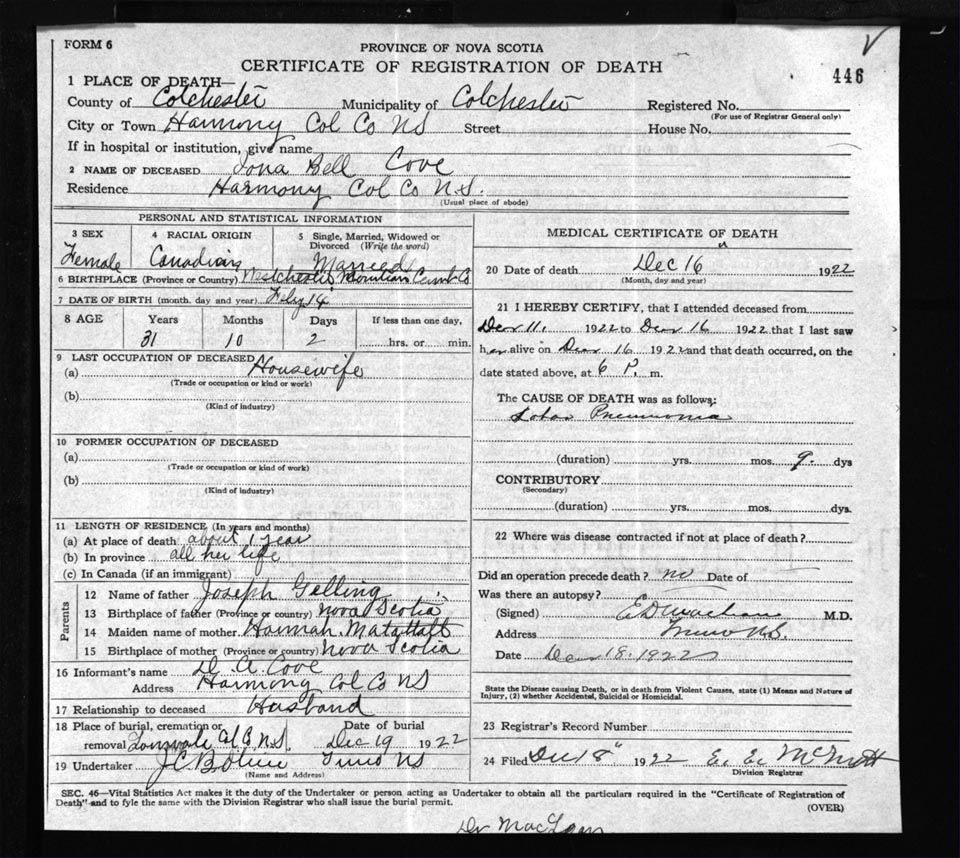 FORM 6
PROVINCE OF NOVA SCOTIA
CERTIFICATE OF REGISTRATION OF DEATH
446
1 PLACE OF DEATH—
County of Colchester Municipality of Colchester Registered No.
(For use of Registrar General only)
City or Town Harmony Col Co NS Street House No.
If in hospital or institution, give name
2 NAME OF DECEASED Iona Bell Cove
Residence Harmony Col Co N.S.
(Usual place of abode)
PERSONAL AND STATISTICAL INFORMATION
3 SEX 4 RACIAL ORIGIN 5 Single, Married, Widowed or Divorced (Write the word)
Female Canadian Married
6 BIRTHPLACE (Province or Country) Westchester Mountain Cumb Co
7 DATE OF BIRTH (month, day and year) Feby 14
8 AGE Years Months Days If less than one day,
31 10 2 hrs. or min.
9 LAST OCCUPATION OF DECEASED
(a) Housewife
(Trade or occupation or kind or work)
(b)
(Kind of industry)
10 FORMER OCCUPATION OF DECEASED
(a)
(Trade or occupation or kind of work)
(b)
(Kind of industry)
11 LENGTH OF RESIDENCE (In years and months)
(a) At place of death about 1 year
(b) In province all her life
(c) In Canada (if an immigrant)
Parents
12 Name of father Joseph Gelling
13 Birthplace of father (Province or country) Nova Scotia
14 Maiden name of mother Hannah Matattall
15 Birthplace of mother (Province or country) Nova Scotia
16 Informant's name D. A. Cove
Address Harmony Col Co NS
17 Relationship to deceased Husband
18 Place of burial, cremation or removal Col Co N.S. Date of burial Dec 19 1922
19 Undertaker J C Truro NS
(Name and Address)
MEDICAL CERTIFICATE OF DEATH
20 Date of death Dec 16 1922
(Month, day and year)
21 I HEREBY CERTIFY, that I attended deceased from
Dec 11. 1922 to Dec 16 1922 that I last saw
her alive on Dec 16 1922 and that death occurred, on the
date stated above, at 6 P. m.
The CAUSE OF DEATH was as follows:
Lobar Pneumonia
(duration) yrs. mos. 9 dys
CONTRIBUTORY
(Secondary)
(duration) yrs. mos. dys.
22 Where was disease contracted if not at place of death?
Did an operation precede death? no Date of
Was there an autopsy?
(Signed) M.D.
Address Truro N.S.
Date Dec 18. 1922
State the Disease causing Death, or in death from Violent Causes, state (1) Means and Nature of
Injury, (2) whether Accidental, Suicidal or Homicidal.
23 Registrar's Record Number
24 Filed Dec 18" 1922
Division Registrar
SEC. 46—Vital Statistics Act makes it the duty of the Undertaker or person acting as Undertaker to obtain all the particulars required in the "Certificate of Registration of
Death" and to fyle the same with the Division Registrar who shall issue the burial permit.
(OVER)
Dr